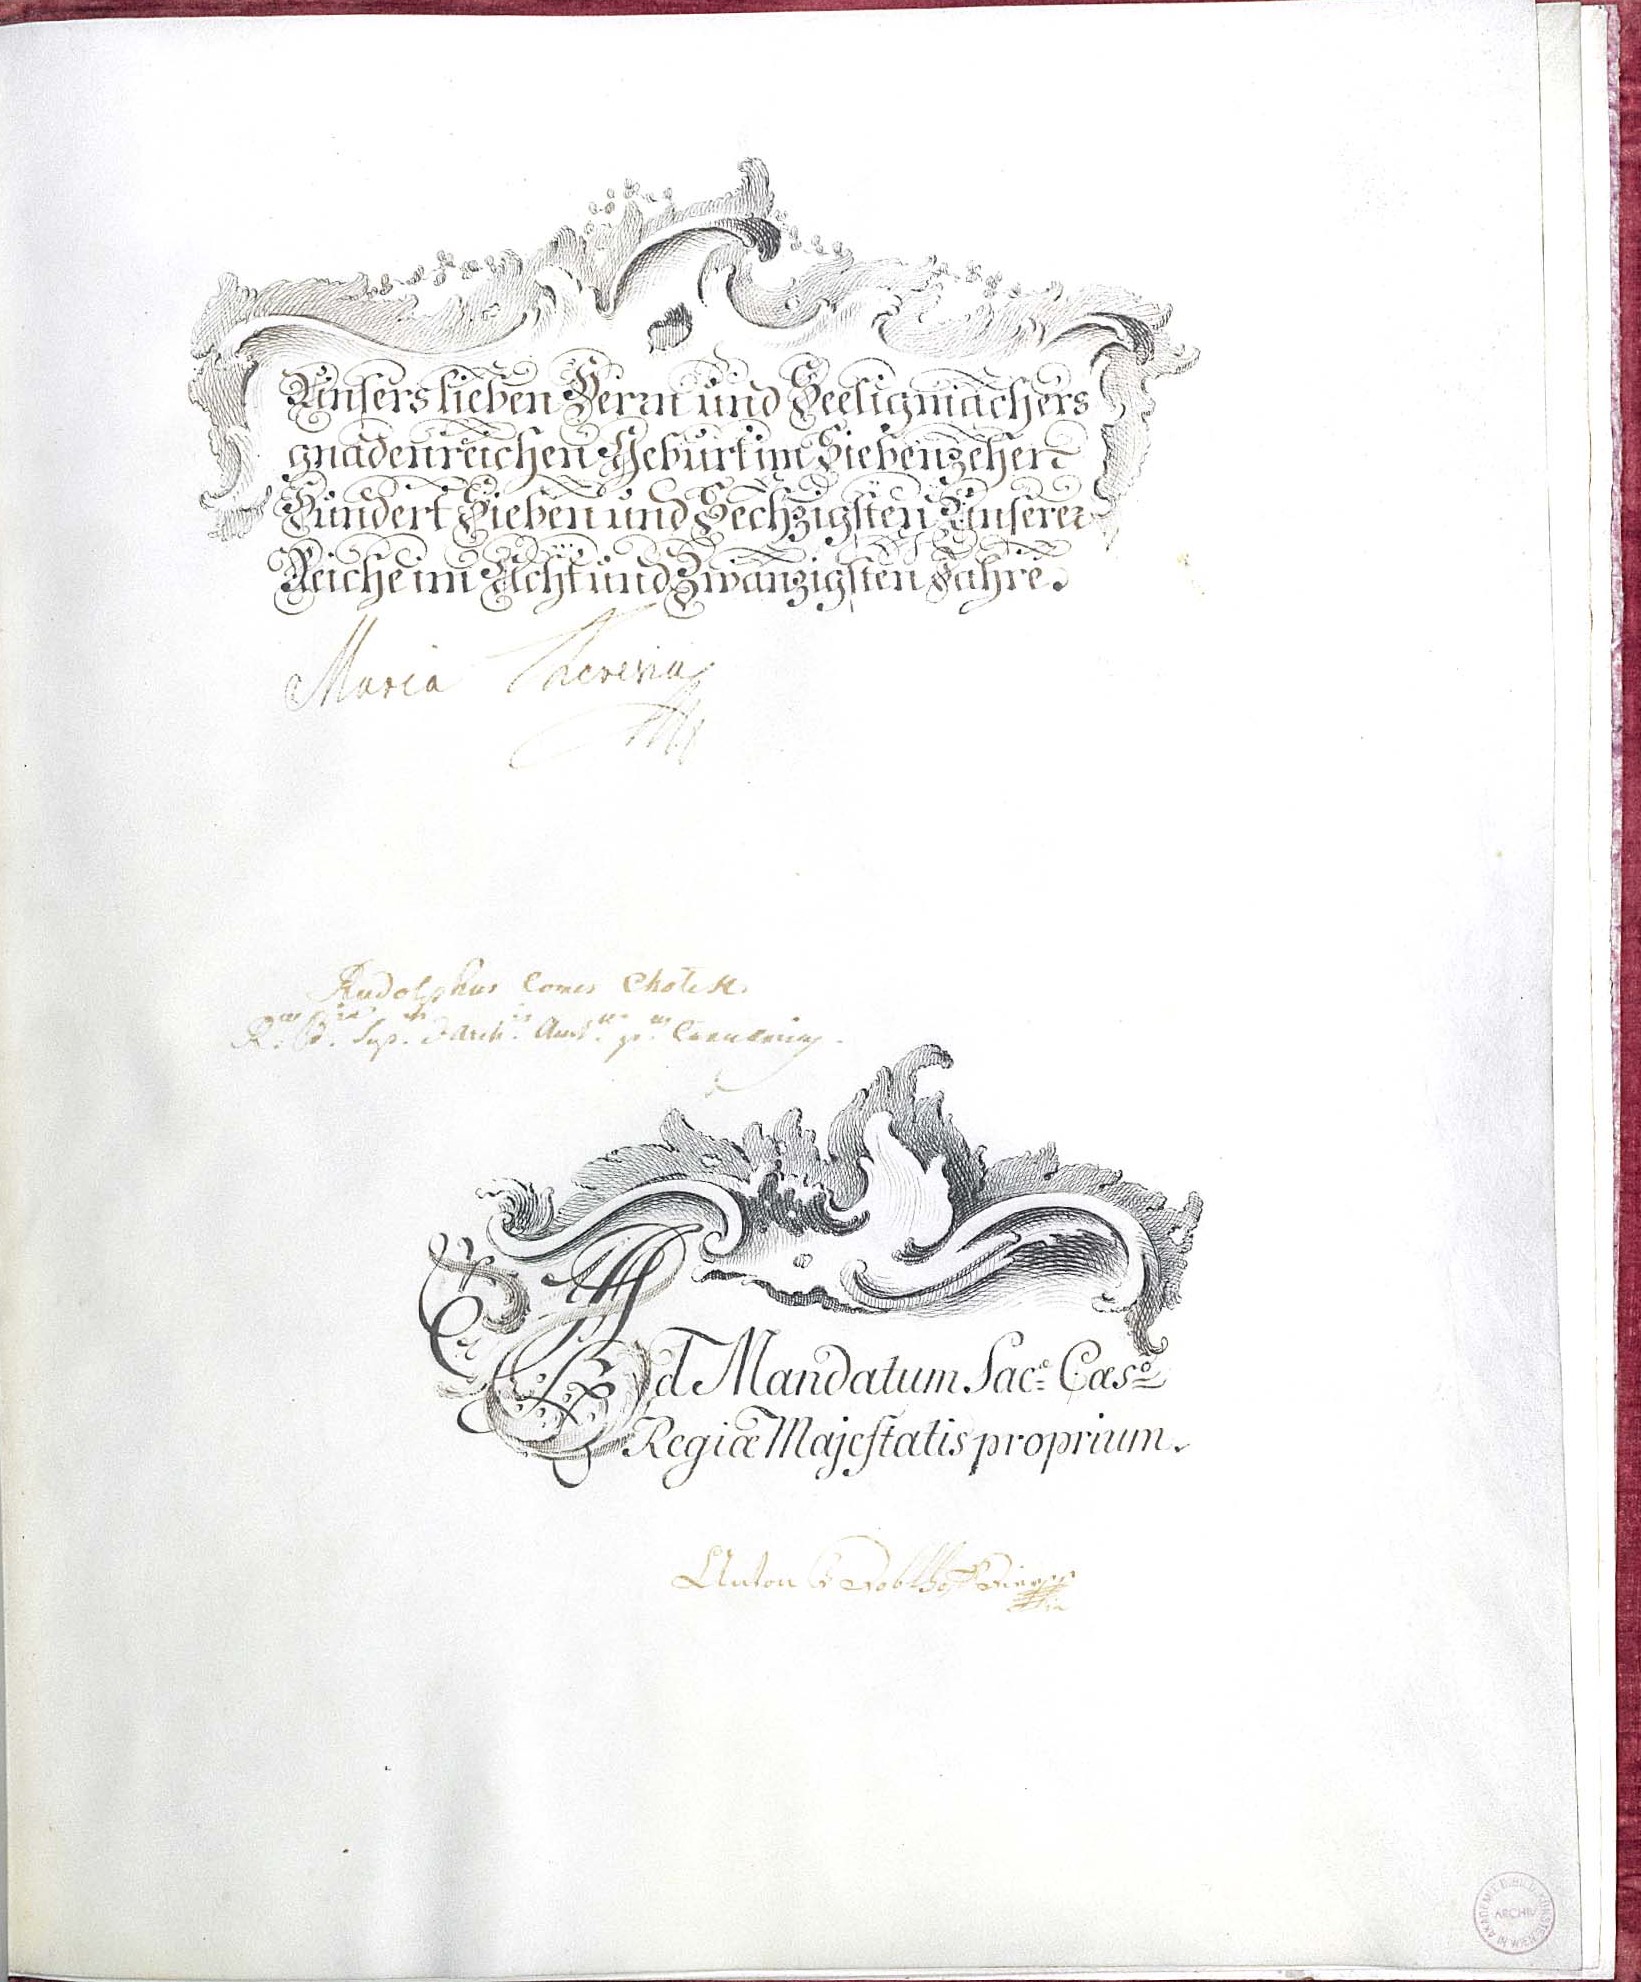 Unsers lieben Herrn und Seeligmachers
gnadenreichen Geburt im Siebenzehen
Hundert Sieben und Sechzigsten Unserer
Reiche im Acht und Zwanzigsten Jahre.
Maria Theresia
Rudolphus Comes Chotek.
Ad Mandatum Sac: Cæs:
Regiæ Majestatis proprium.
Anton
AKADEMIE D. BILD. KÜNSTE IN WIEN
ARCHIV